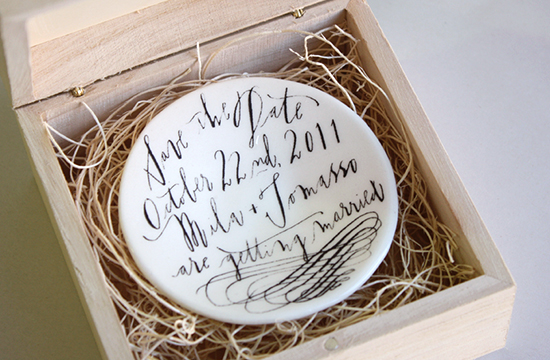 Save the Date
October 22nd, 2011
Mila + Tomasso
are getting married